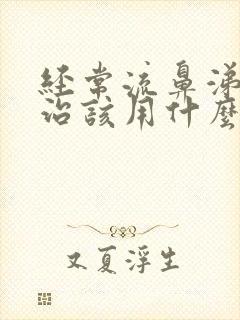 经常流鼻涕
治该用什麼
又夏浮生